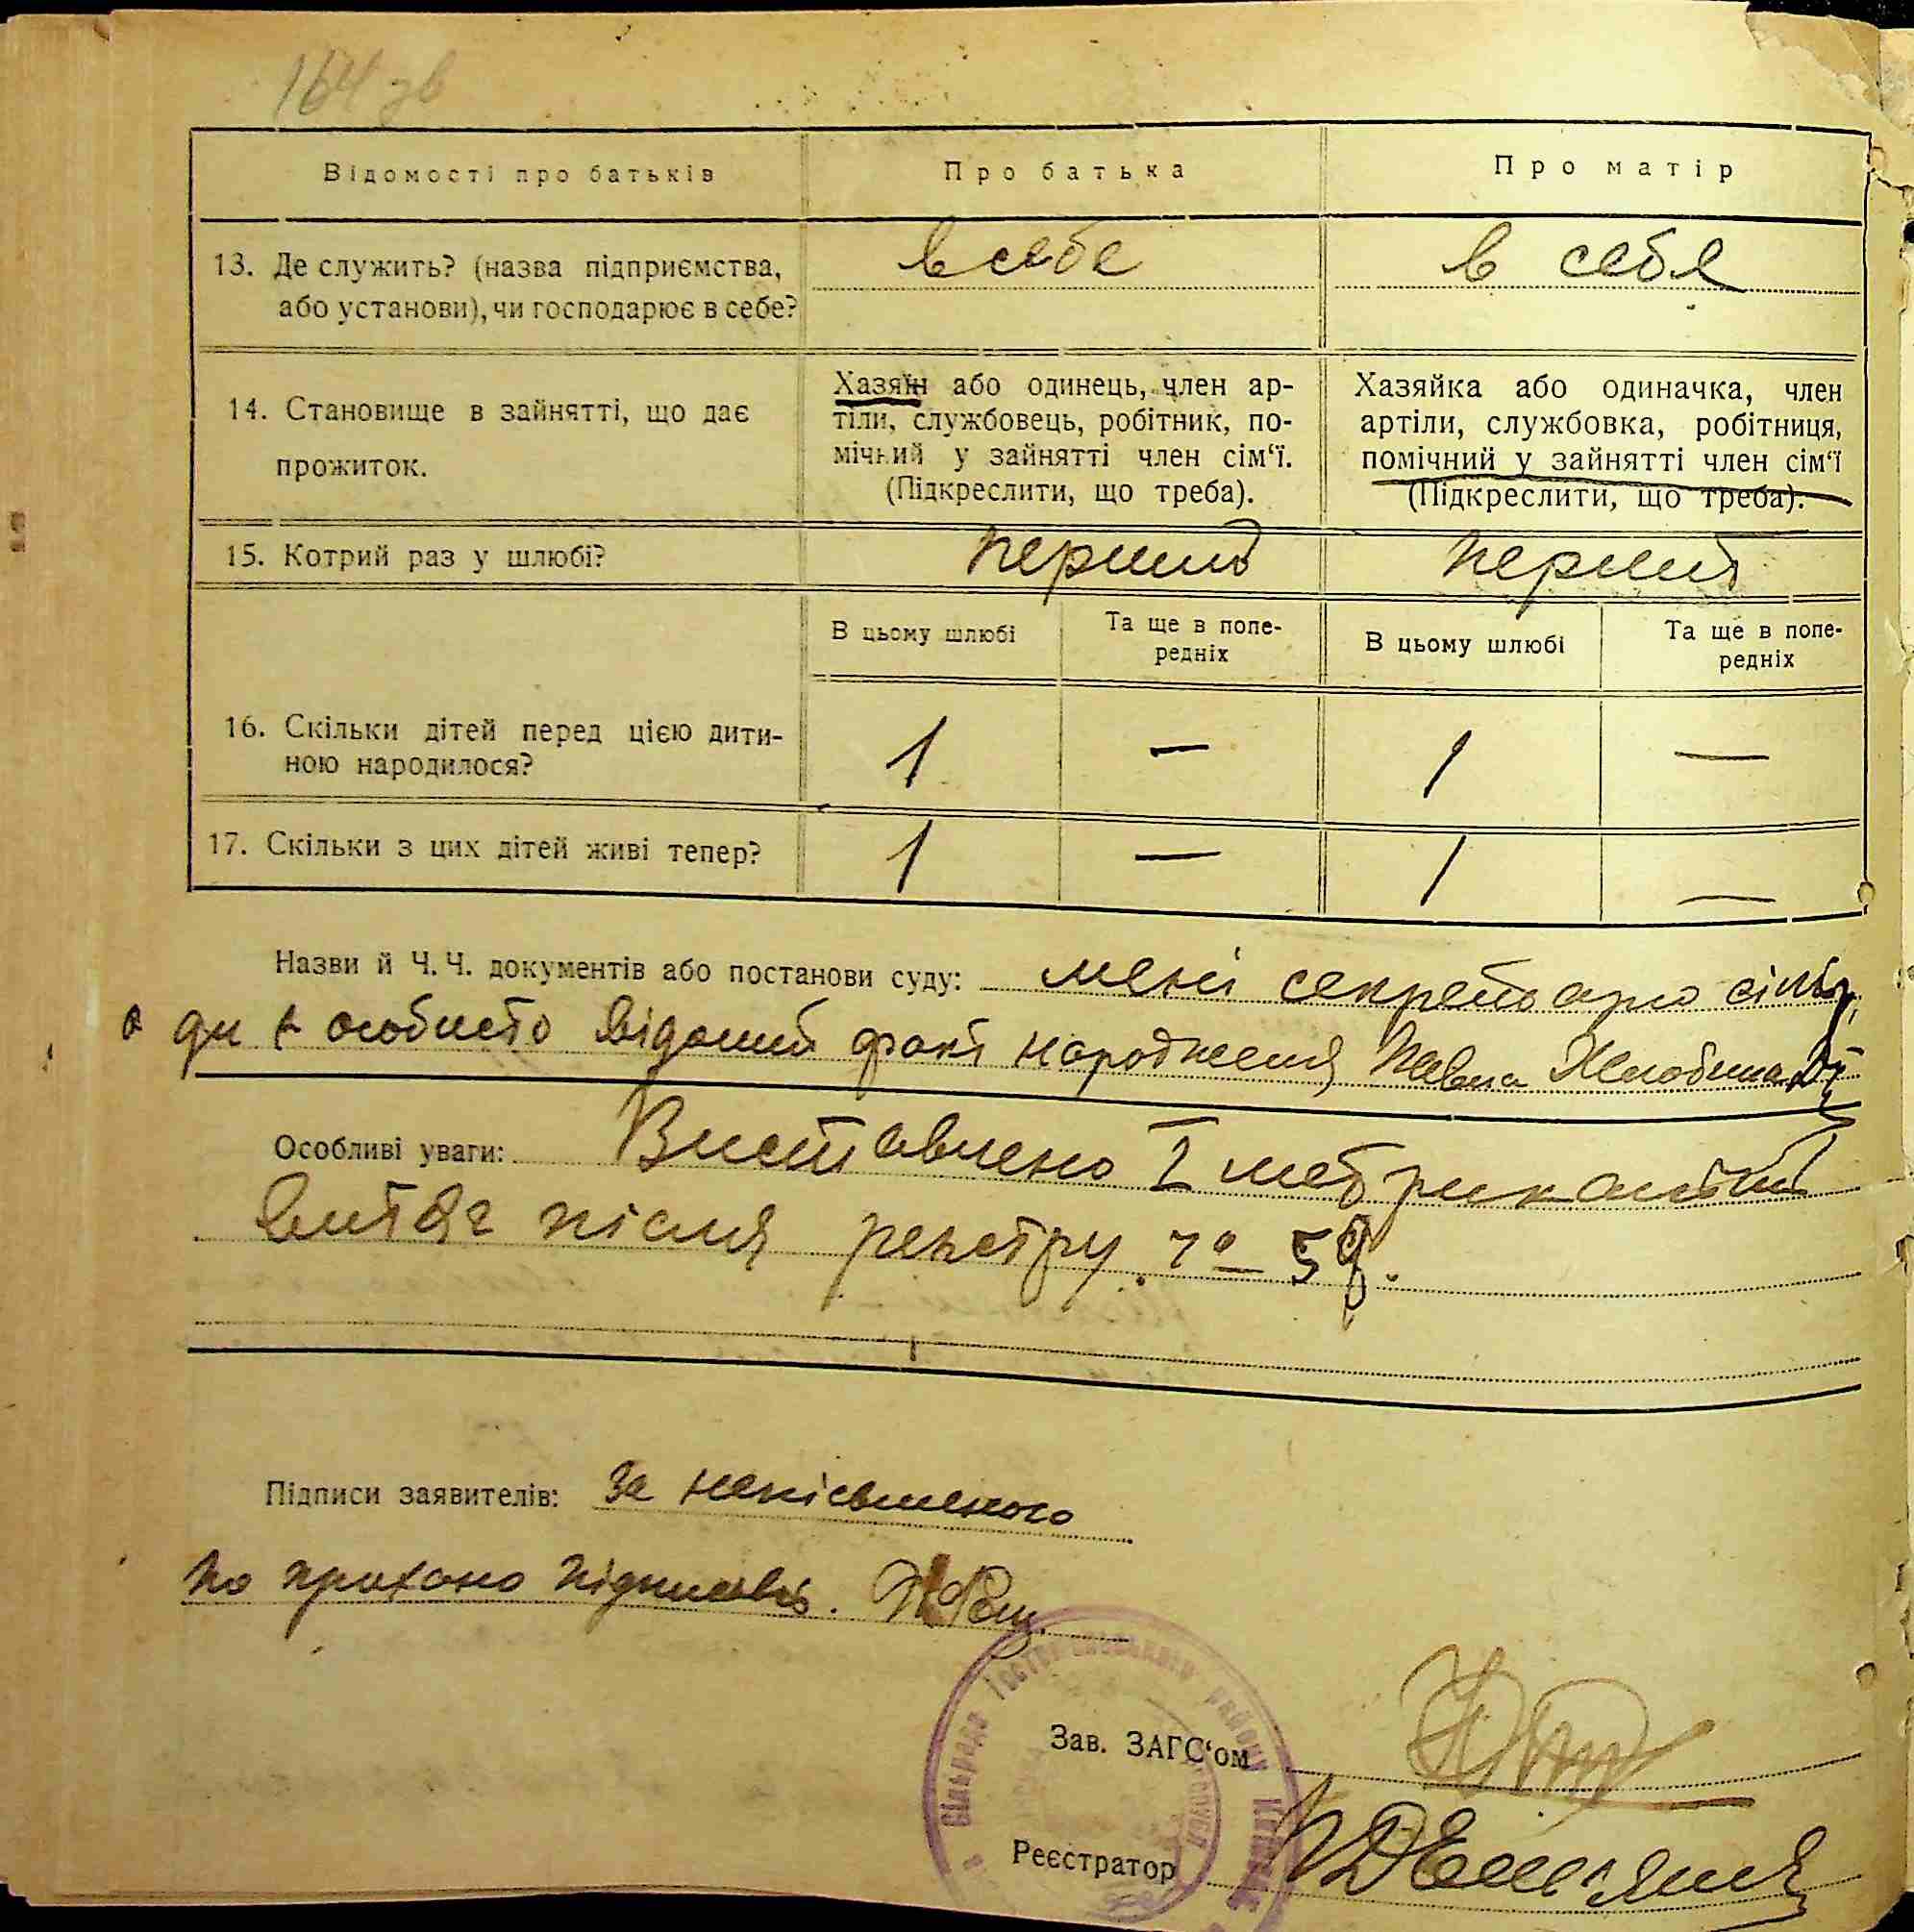 164 зв
Відомості про батьків
Про батька
Про матір
13. Де служить? (назва підприємства,
або установи), чи господарює в себе?
в себе
в себя
14. Становище в зайнятті, що дає
прожиток.
Хазяїн або одинець, член ар-
тіли, службовець, робітник, по-
мічний у зайнятті член сім‘ї.
(Підкреслити, що треба).
Хазяйка або одиначка, член
артіли, службовка, робітниця,
помічний у зайнятті член сім‘ї
(Підкреслити, що треба).
15. Котрий раз у шлюбі?
перший
перший
В цьому шлюбі
Та ще в попе-
редніх
В цьому шлюбі
Та ще в попе-
редніх
16. Скільки дітей перед цією дити-
ною народилося?
1
—
1
—
17. Скільки з цих дітей живі тепер?
1
—
1
—
Назви й Ч. Ч. документів або постанови суду: мені секретарю сільр
ади особисто відомий факт народження
Особливі уваги: Виставлено I метрикальний
витяг після реєстру
Підписи заявителів: За неписьменого
по прохано підписавсь.
Зав. ЗАГС‘ом
Реєстратор
Сільрада району